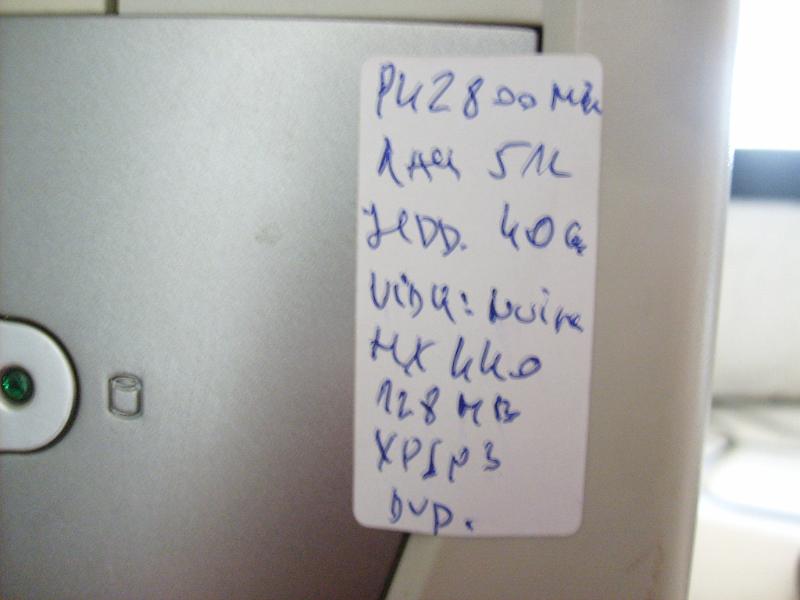 P4 2800 MH
RAM 512
HDD. 40G
VIDU: NViM
MX 440
128 MB
XP SP3
DVD.